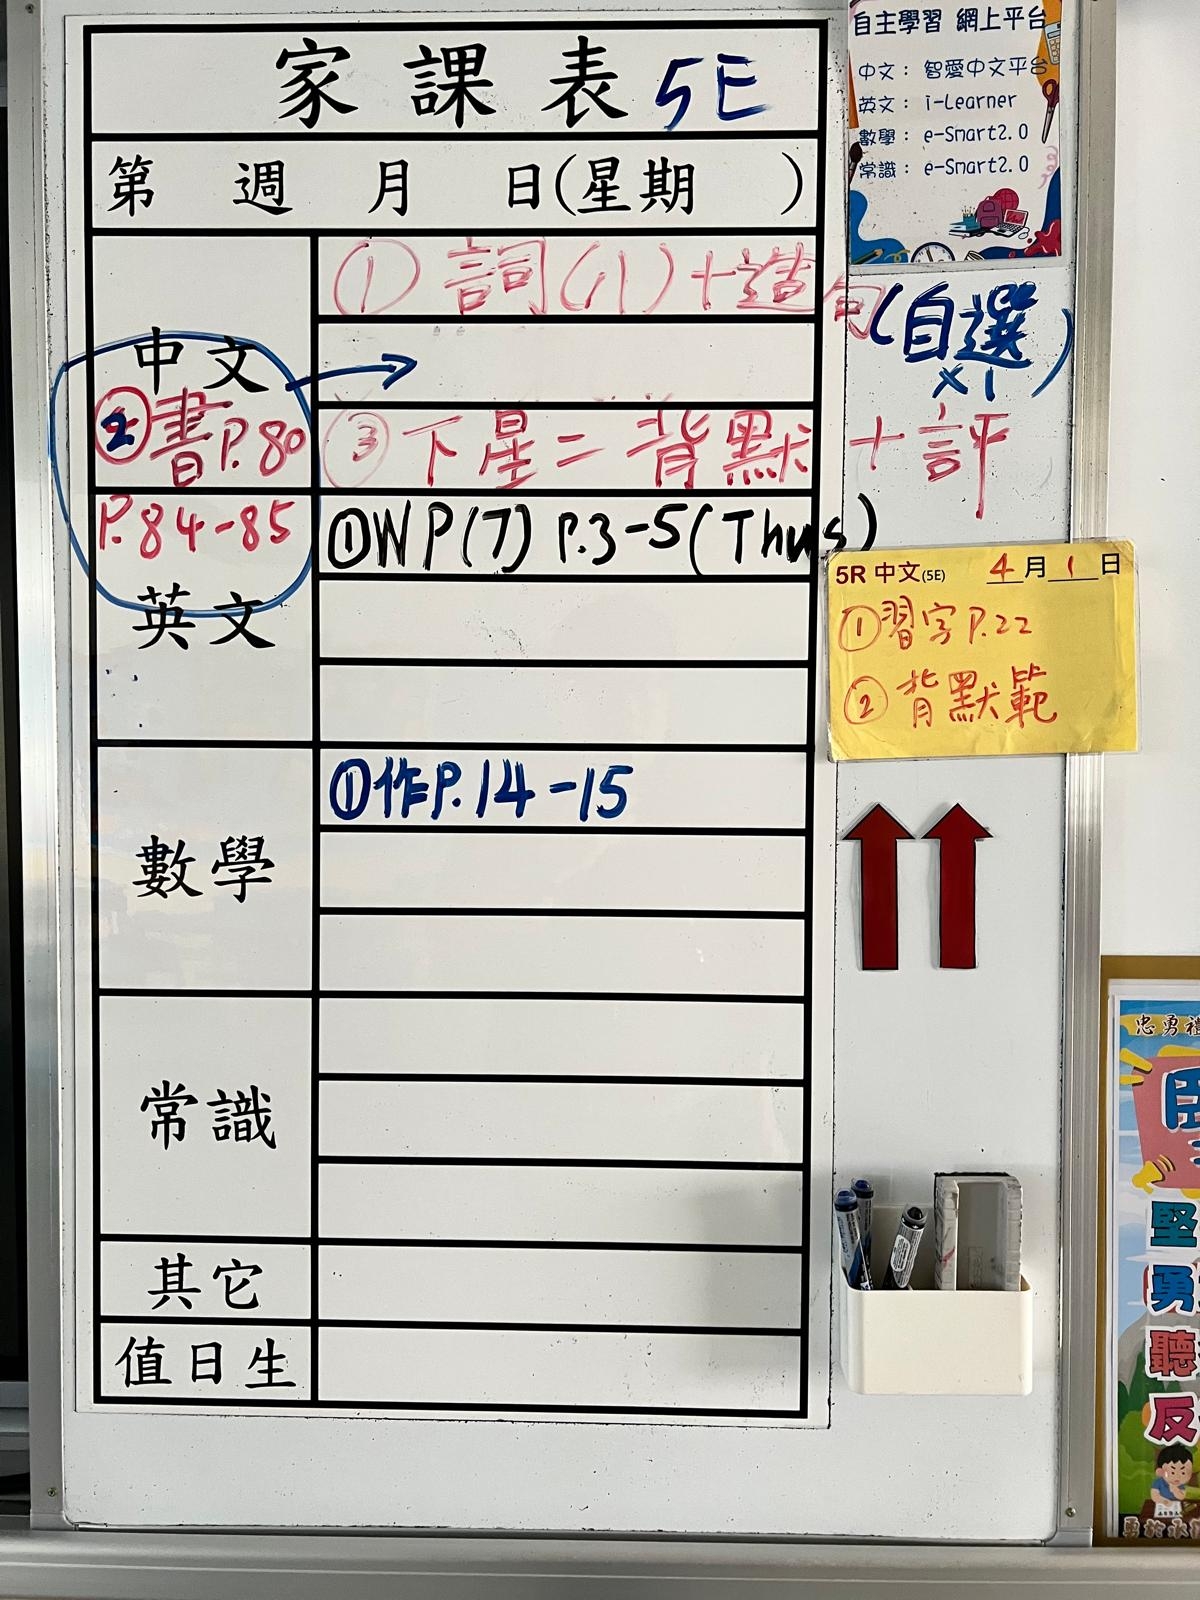 家課表 5E
第 週 月 日(星期 )
中文
① 詞(八)+造句(自選x1)
② 書P.80
P.84-85
③ 下星二背默+評
英文
①WP(7) P.3-5(Thurs)
數學
①作P.14-15
常識
其它
值日生
自主學習 網上平台
中文: 智愛中文平台
英文: i-Learner
數學: e-Smart2.0
常識: e-Smart2.0
5R 中文(5E) 4月1日
①習字P.22
② 背默範
忠勇
堅
勇
聽
反